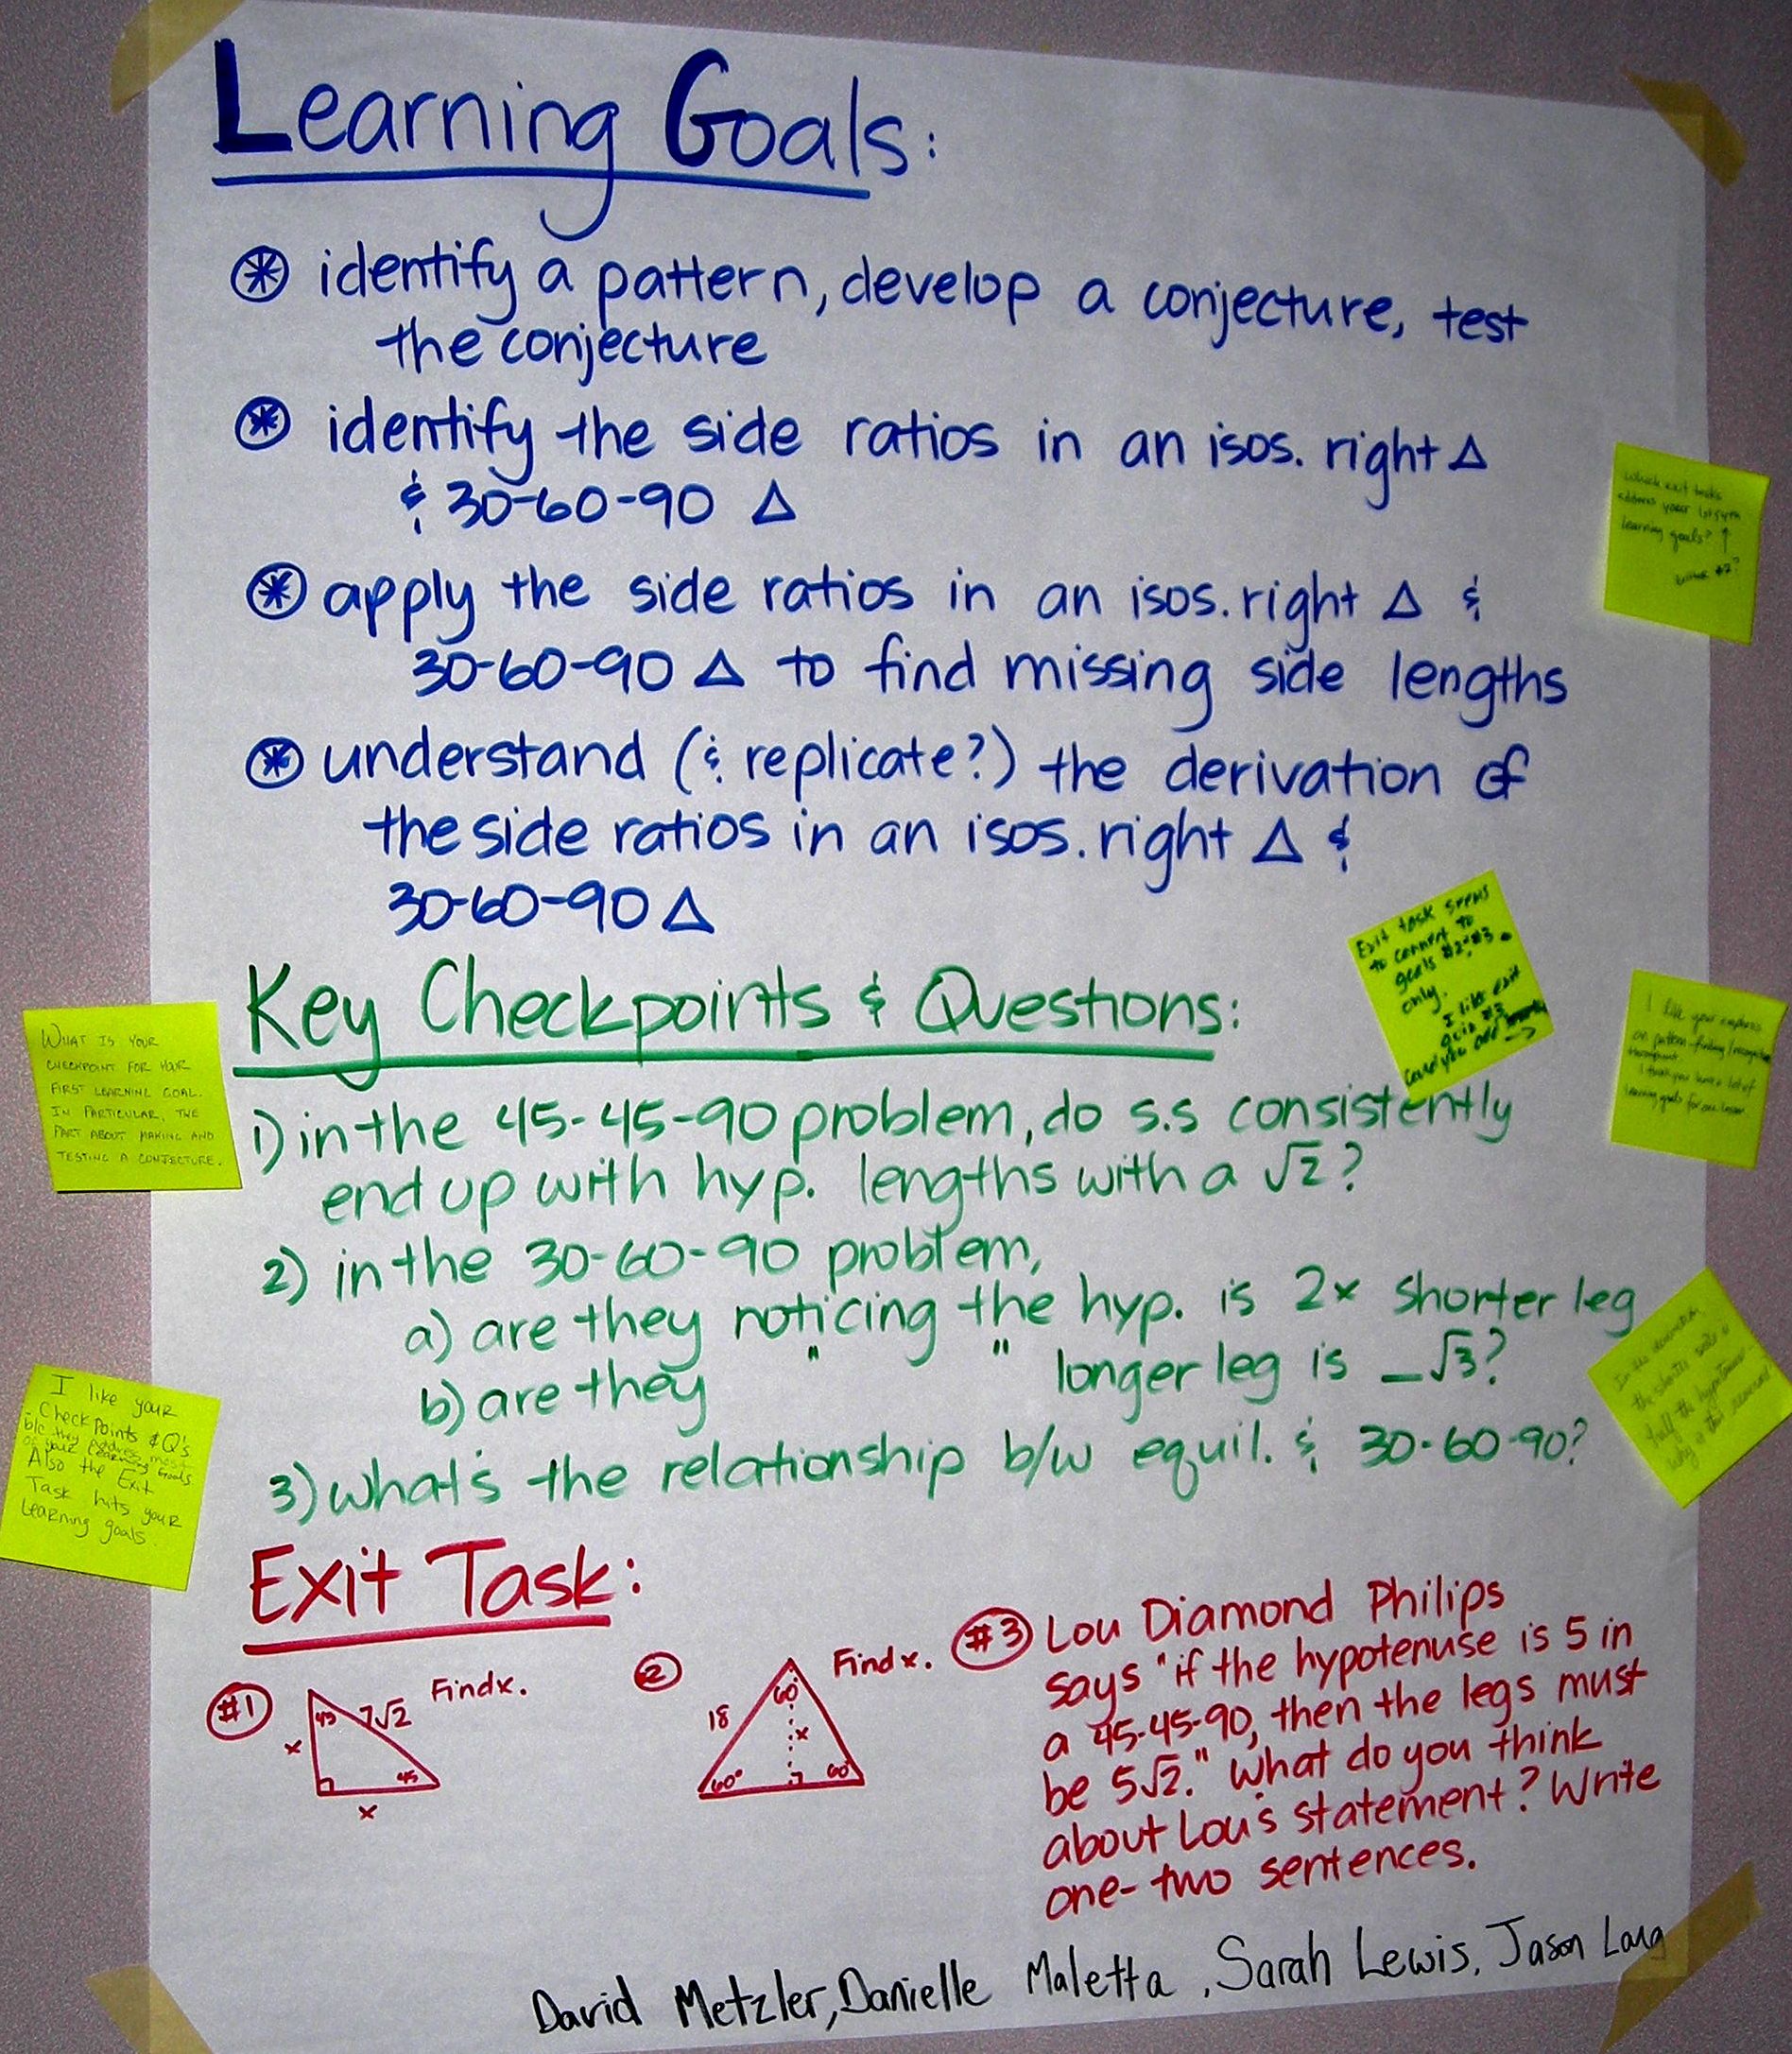 Learning Goals:
identify a pattern, develop a conjecture, test
the conjecture
identify the side ratios in an isos. right Δ
& 30-60-90 Δ
apply the side ratios in an isos. right Δ &
30-60-90 Δ to find missing side lengths
understand (& replicate?) the derivation of
the side ratios in an isos. right Δ &
30-60-90 Δ
Key Checkpoints & Questions:
1) in the 45-45-90 problem, do s.s consistently
end up with hyp. lengths with a √2?
2) in the 30-60-90 problem,
a) are they noticing the hyp. is 2x shorter leg
b) are they " " longer leg is _√3?
3) what's the relationship b/w equil. & 30-60-90?
Exit Task:
#1
45
7√2
Find x.
x
45
x
2
Find x.
60
18
x
60°
60
#3 Lou Diamond Philips
says "if the hypotenuse is 5 in
a 45-45-90, then the legs must
be 5√2." What do you think
about Lou's statement? Write
one-two sentences.
David Metzler, Danielle Maletta, Sarah Lewis, Jason Lang
Which exit tasks
address your
learning goals? ↑
#2?
Exit task seems
to connect to
goals #2 & #3
only.
I like exit
quiz #3
could you add
→
I like your emphasis
on pattern-finding/
throughout.
I think you have a lot of
learning goals for one lesson
In the
the shorter side is
half the hypotenuse
why is this
WHAT IS YOUR
CHECKPOINT FOR YOUR
FIRST LEARNING GOAL.
IN PARTICULAR, THE
PART ABOUT MAKING AND
TESTING A CONJECTURE.
I like your
Checkpoints & Q's
b/c they address most
of your Learning Goals
Also the Exit
Task hits your
Learning goals.